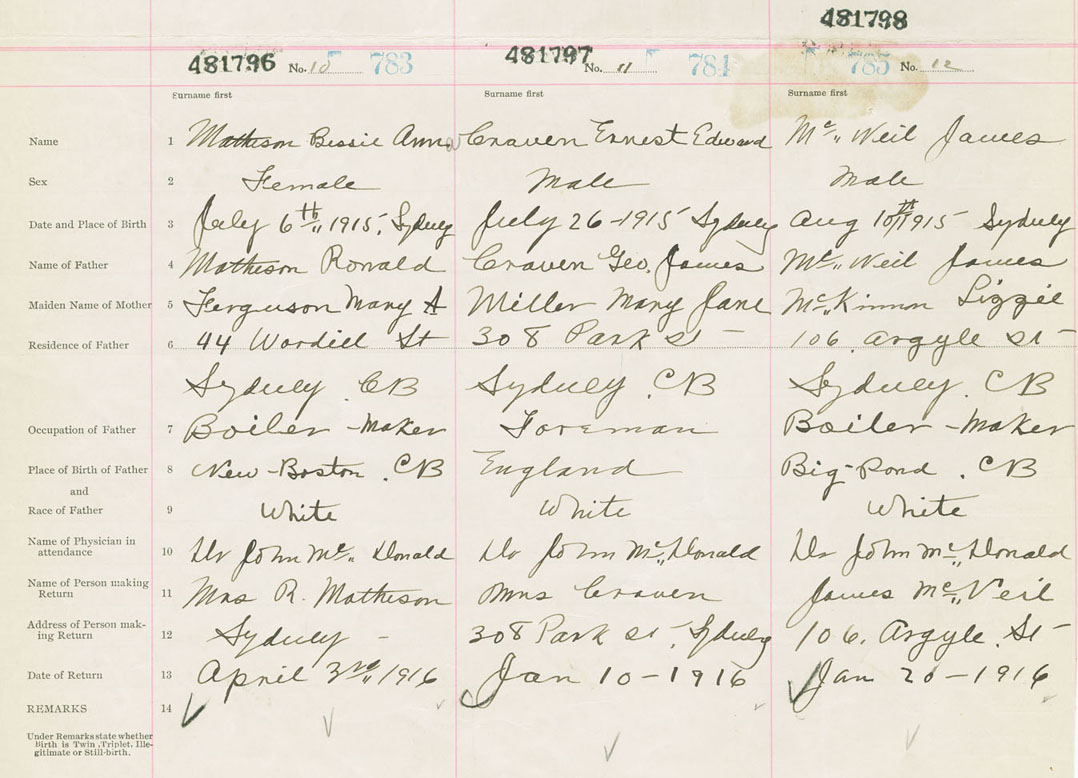 481798
481796 No. 10 783 481797 No. 11 784 785 No. 12
Surname first Surname first Surname first
Name 1 Matheson Bessie Ann Craven Ernest Edward Mc Neil James
Sex 2 Female Male Male
Date and Place of Birth 3 July 6th 1915, Sydney July 26-1915 Sydney Aug 10th 1915 Sydney
Name of Father 4 Matheson Ronald Craven Geo. James Mc Neil James
Maiden Name of Mother 5 Ferguson Mary A Miller Mary Jane McKinnon Lizzie
Residence of Father 6 44 St 308 Park St 106. Argyle St
Sydney. CB Sydney. CB Sydney. CB
Occupation of Father 7 Boiler-Maker Foreman Boiler-Maker
Place of Birth of Father 8 New-Boston. CB England Big-Pond. CB
and
Race of Father 9 White White White
Name of Physician in
attendance 10 Dr John Mc Donald Dr John McDonald Dr John McDonald
Name of Person making
Return 11 Mrs R. Matheson Mrs Craven James McNeil
Address of Person mak-
ing Return 12 Sydney - 308 Park St - Sydney 106. Argyle. St -
Date of Return 13 April 3rd 1916 Jan 10-1916 Jan 20-1916
REMARKS 14
Under Remarks state whether
Birth is Twin, Triplet, Ille-
gitimate or Still-birth.